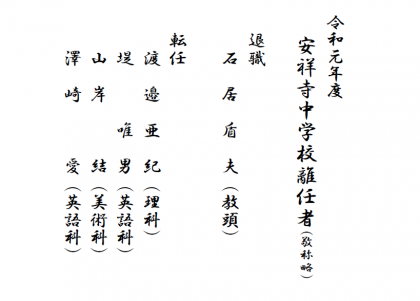 令和元年度
安祥寺中学校離任者(敬称略)
退職
石居盾夫(教頭)
転任
渡邉亜紀(理科)
堤唯男(英語科)
山岸結(美術科)
澤崎愛(英語科)